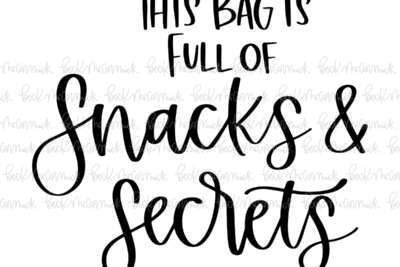 THIS BAG IS
FULL OF
Snacks &
Secrets